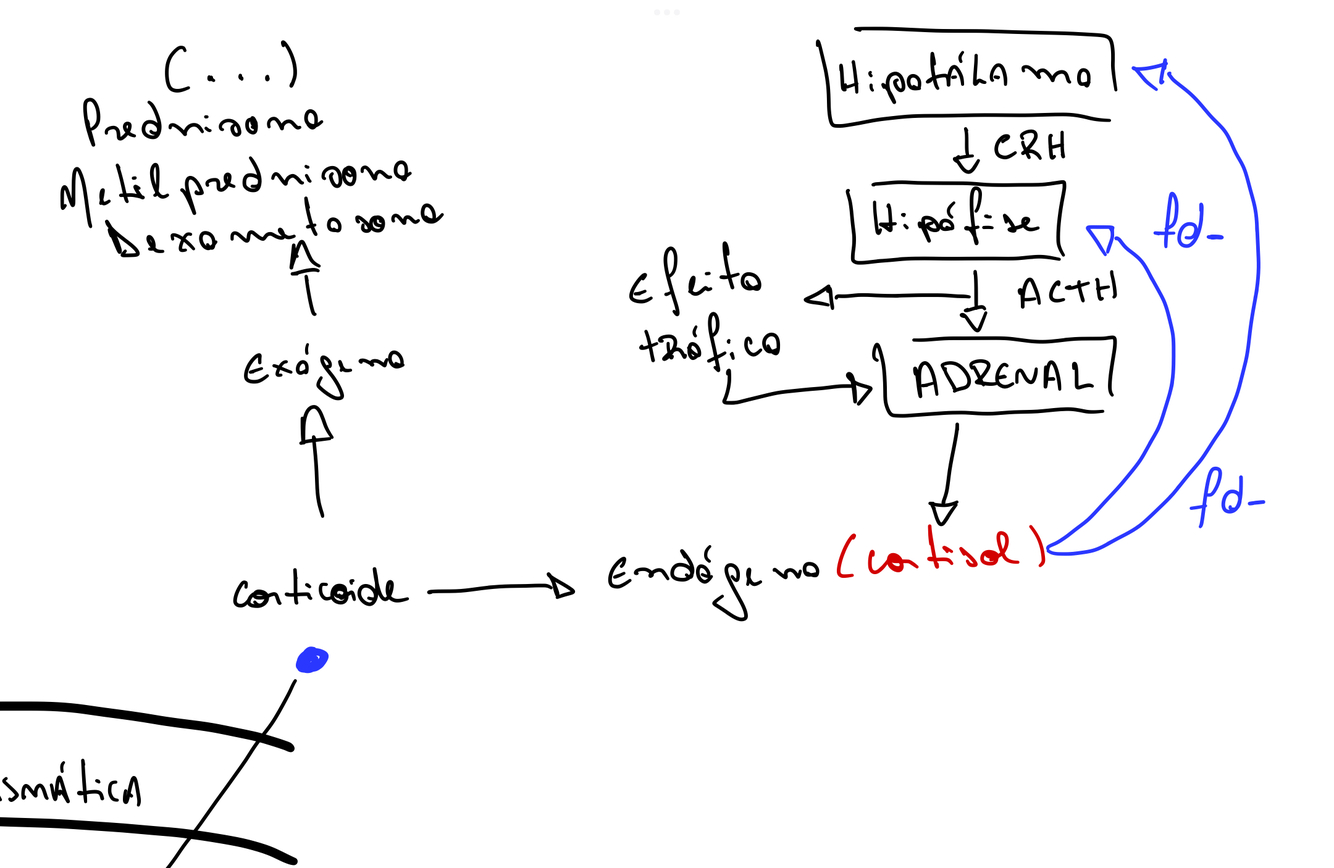 (...)
Prednisona
Metilprednisona
Dexametasona
Exógeno
corticoide
Endógeno (cortisol)
Hipotálamo
CRH
Hipófise
ACTH
Efeito
trófico
ADRENAL
fd-
fd-
smática